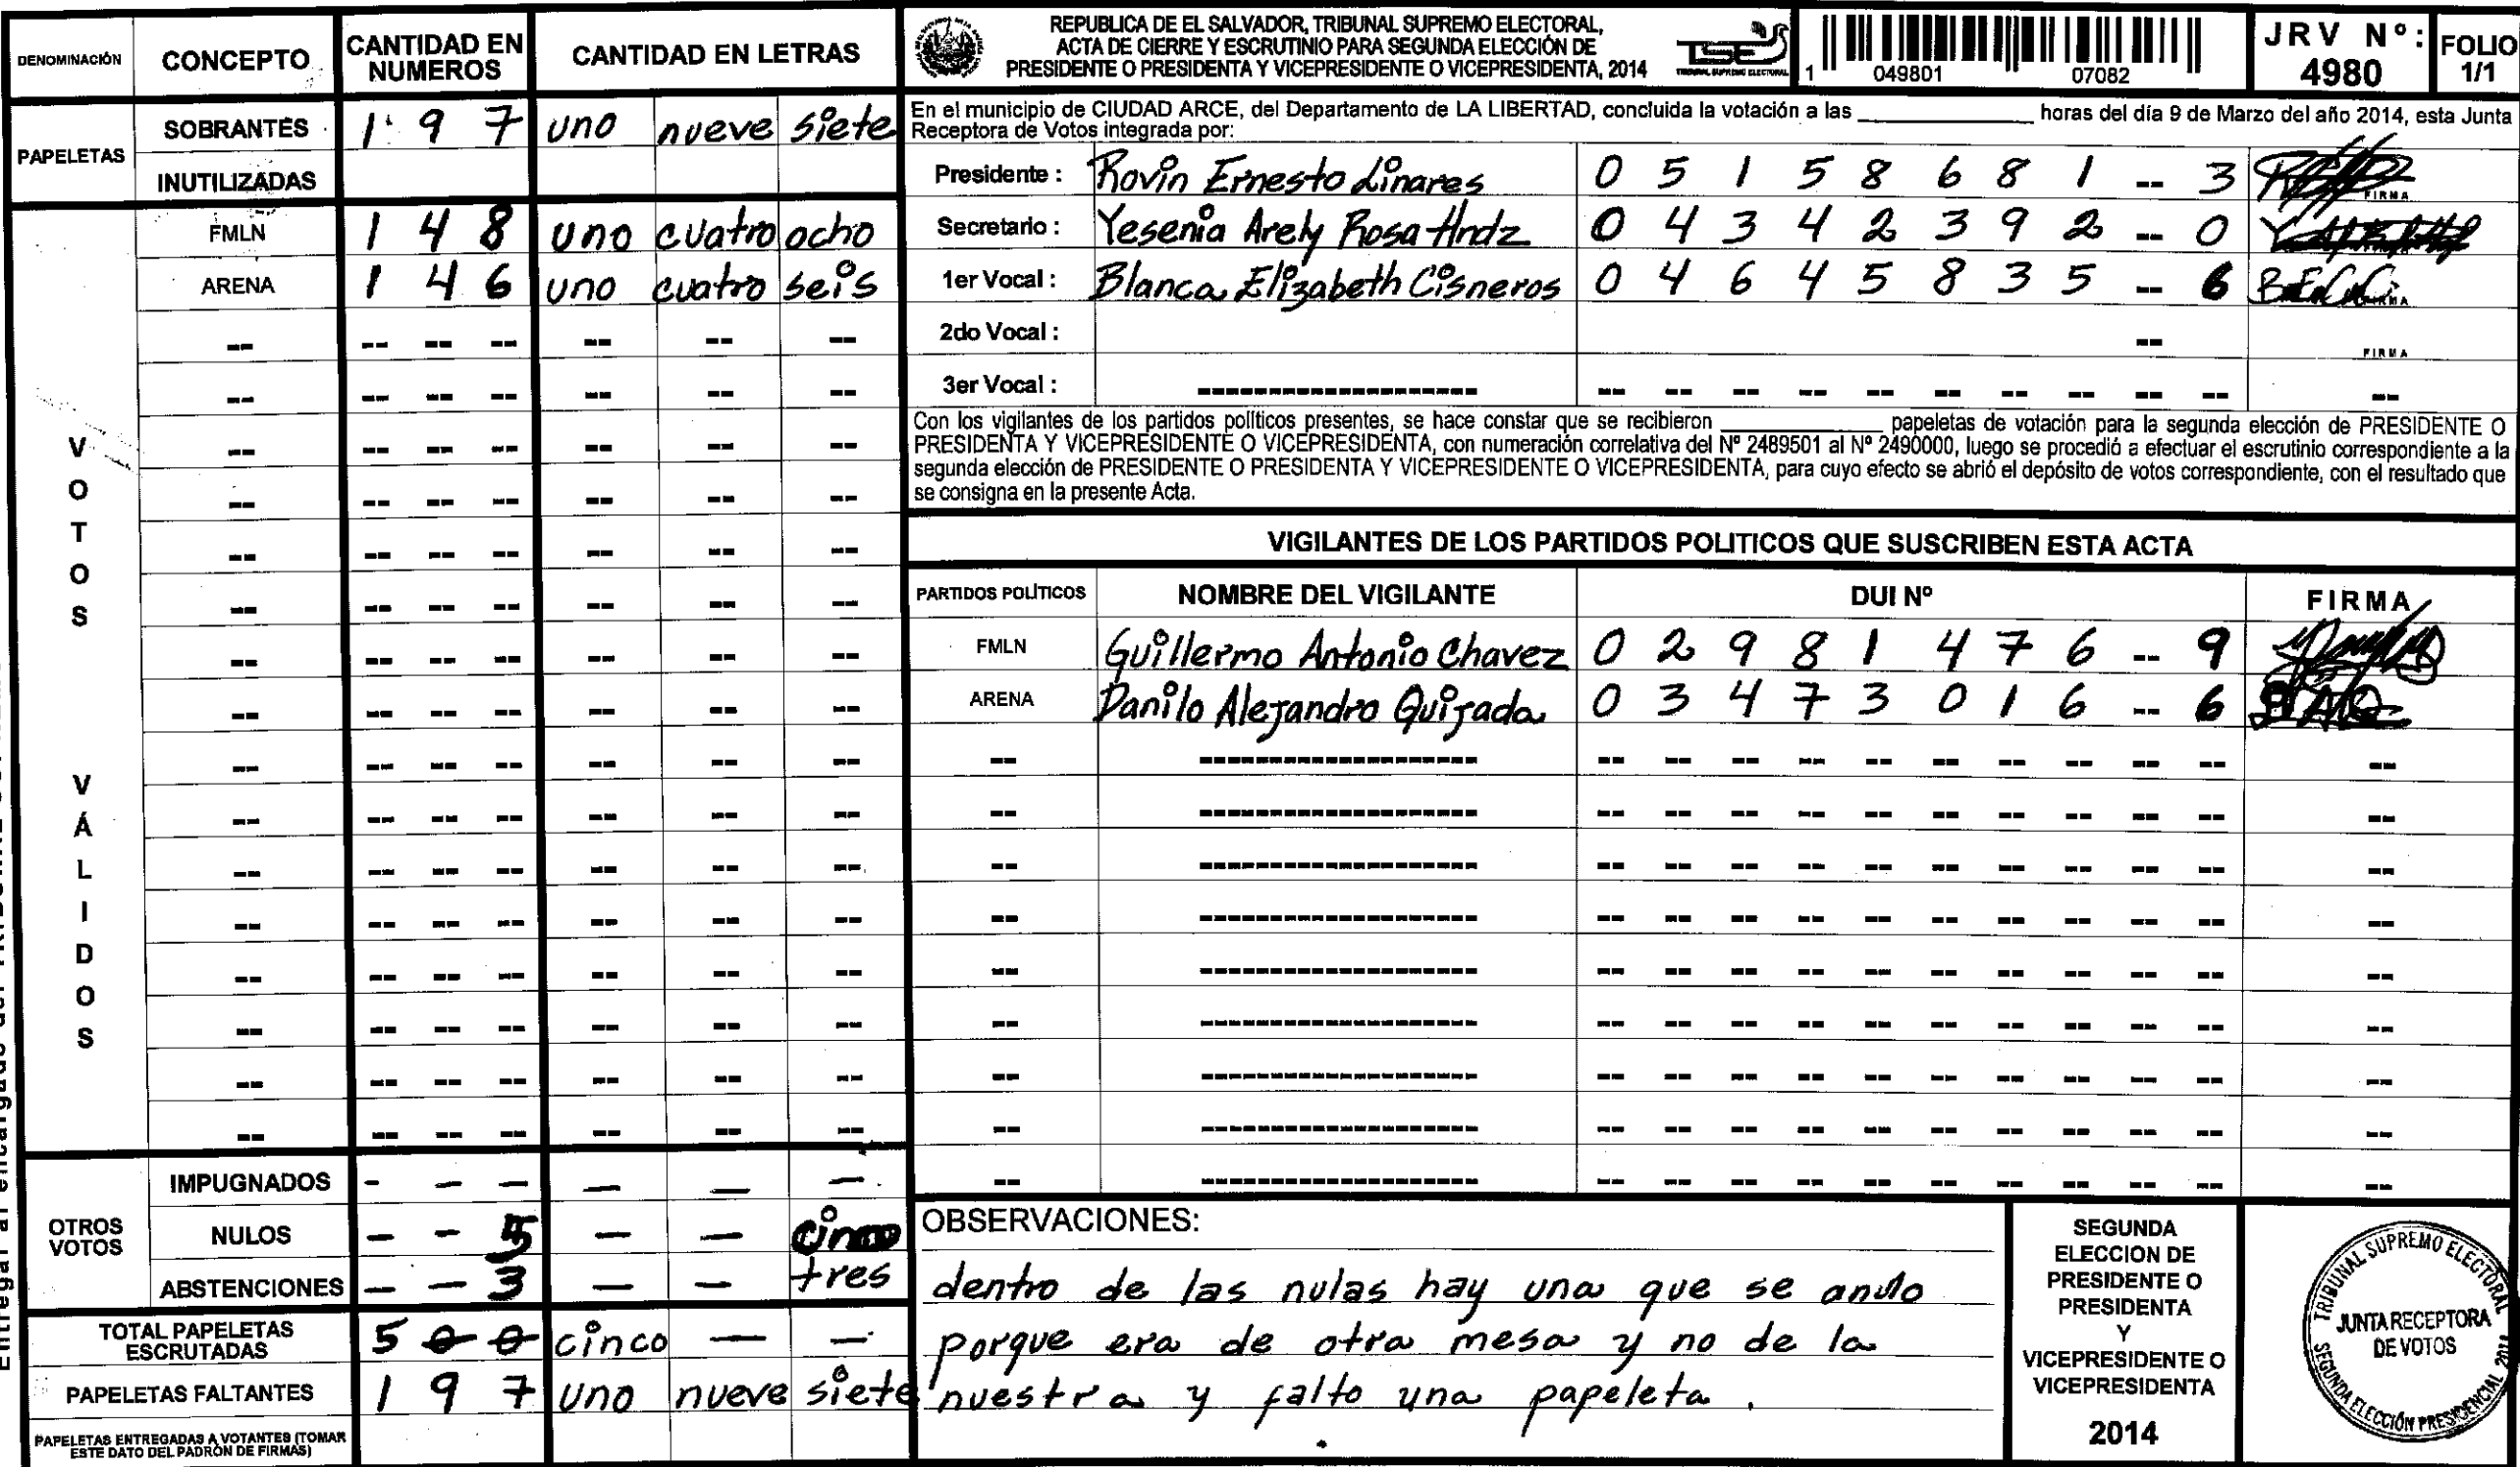 DENOMINACIÓN CONCEPTO CANTIDAD EN NUMEROS CANTIDAD EN LETRAS
PAPELETAS
SOBRANTES 1 9 7 uno nueve siete
INUTILIZADAS
VOTOS VÁLIDOS
FMLN 1 4 8 uno cuatro ocho
ARENA 1 4 6 uno cuatro seis
OTROS VOTOS
IMPUGNADOS - - - — — —
NULOS - - 5 — — cinco
ABSTENCIONES - - 3 — — tres
TOTAL PAPELETAS ESCRUTADAS 5 0 0 cinco — —
PAPELETAS FALTANTES 1 9 7 uno nueve siete
PAPELETAS ENTREGADAS A VOTANTES (TOMAR
ESTE DATO DEL PADRÓN DE FIRMAS)
REPUBLICA DE EL SALVADOR, TRIBUNAL SUPREMO ELECTORAL,
ACTA DE CIERRE Y ESCRUTINIO PARA SEGUNDA ELECCIÓN DE
PRESIDENTE O PRESIDENTA Y VICEPRESIDENTE O VICEPRESIDENTA, 2014
TSE
TRIBUNAL SUPREMO ELECTORAL
1 049801 07082
JRV Nº: 4980
FOLIO 1/1
En el municipio de CIUDAD ARCE, del Departamento de LA LIBERTAD, concluida la votación a las ________ horas del día 9 de Marzo del año 2014, esta Junta
Receptora de Votos integrada por:
Presidente : Rovin Ernesto Linares 0 5 1 5 8 6 8 1 -- 3 FIRMA
Secretario : Yesenia Arely Rosa Hrdz 0 4 3 4 2 3 9 2 -- 0
1er Vocal : Blanca Elizabeth Cisneros 0 4 6 4 5 8 3 5 -- 6
2do Vocal : -- FIRMA
3er Vocal :
Con los vigilantes de los partidos políticos presentes, se hace constar que se recibieron ________ papeletas de votación para la segunda elección de PRESIDENTE O
PRESIDENTA Y VICEPRESIDENTE O VICEPRESIDENTA, con numeración correlativa del Nº 2489501 al Nº 2490000, luego se procedió a efectuar el escrutinio correspondiente a la
segunda elección de PRESIDENTE O PRESIDENTA Y VICEPRESIDENTE O VICEPRESIDENTA, para cuyo efecto se abrió el depósito de votos correspondiente, con el resultado que
se consigna en la presente Acta.
VIGILANTES DE LOS PARTIDOS POLITICOS QUE SUSCRIBEN ESTA ACTA
PARTIDOS POLÍTICOS NOMBRE DEL VIGILANTE DUI Nº FIRMA
FMLN Guillermo Antonio Chavez 0 2 9 8 1 4 7 6 -- 9
ARENA Danilo Alejandro Quijada 0 3 4 7 3 0 1 6 -- 6
OBSERVACIONES:
dentro de las nulas hay una que se anulo
porque era de otra mesa y no de la
nuestra y falto una papeleta.
SEGUNDA
ELECCION DE
PRESIDENTE O
PRESIDENTA
Y
VICEPRESIDENTE O
VICEPRESIDENTA
2014
TRIBUNAL SUPREMO ELECTORAL
JUNTA RECEPTORA
DE VOTOS
SEGUNDA ELECCIÓN PRESIDENCIAL 2014